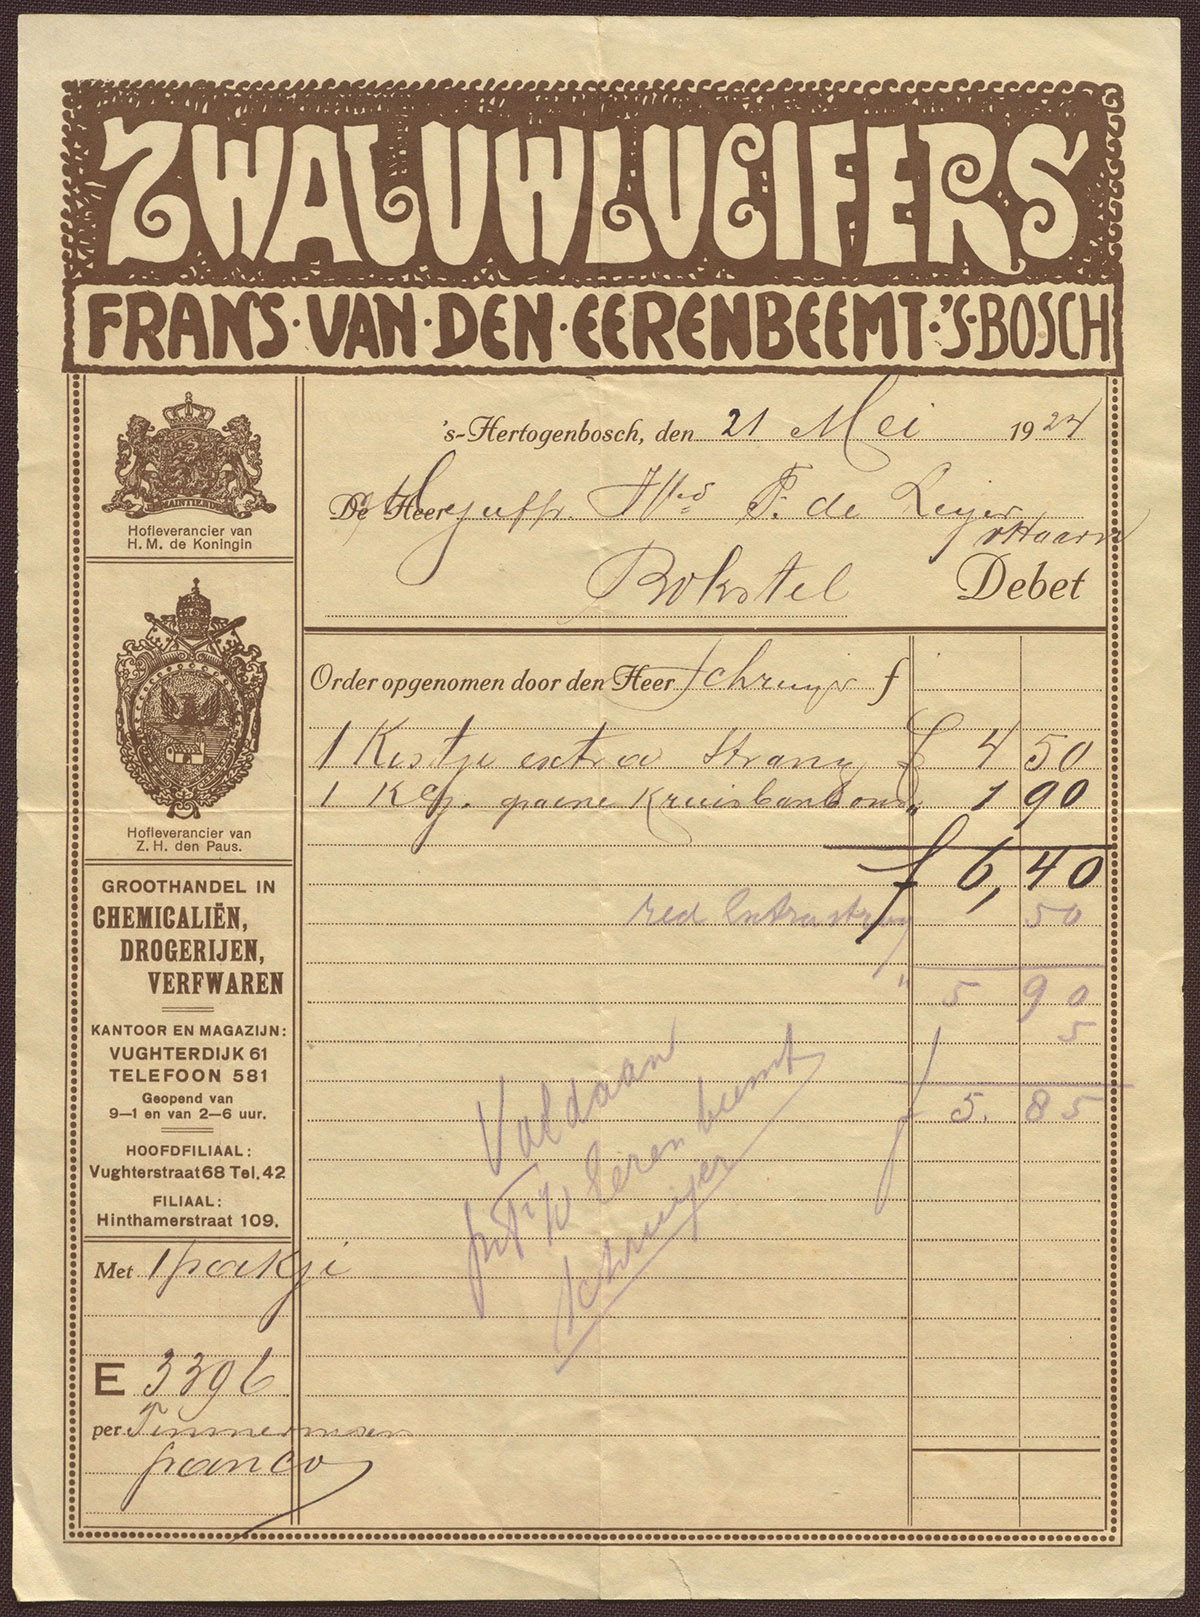 ZWALUWLUCIFERS
FRANS·VAN·DEN·EERENBEEMT·'S-BOSCH
JE MAINTIENDRAI
Hofleverancier van
H. M. de Koningin
Hofleverancier van
Z. H. den Paus.
GROOTHANDEL IN
CHEMICALIËN,
DROGERIJEN,
VERFWAREN
KANTOOR EN MAGAZIJN:
VUGHTERDIJK 61
TELEFOON 581
Geopend van
9—1 en van 2—6 uur.
HOOFDFILIAAL:
Vughterstraat 68 Tel. 42
FILIAAL:
Hinthamerstraat 109.
Met 1 pakje
E 3396
per Timmermans
franco
's-Hertogenbosch, den 21 Mei 1924
De Heer Mejuffr. F. de Leijer
Bokstel
Debet
Order opgenomen door den Heer Schruijer f
1 Kistje extra Strang f 4 50
1 groene Kruisbanden " 1 90
f 6,40
red Extra strang 50
" 5 90
5
f 5. 85
Voldaan
Eerenbeemt
Schruijer